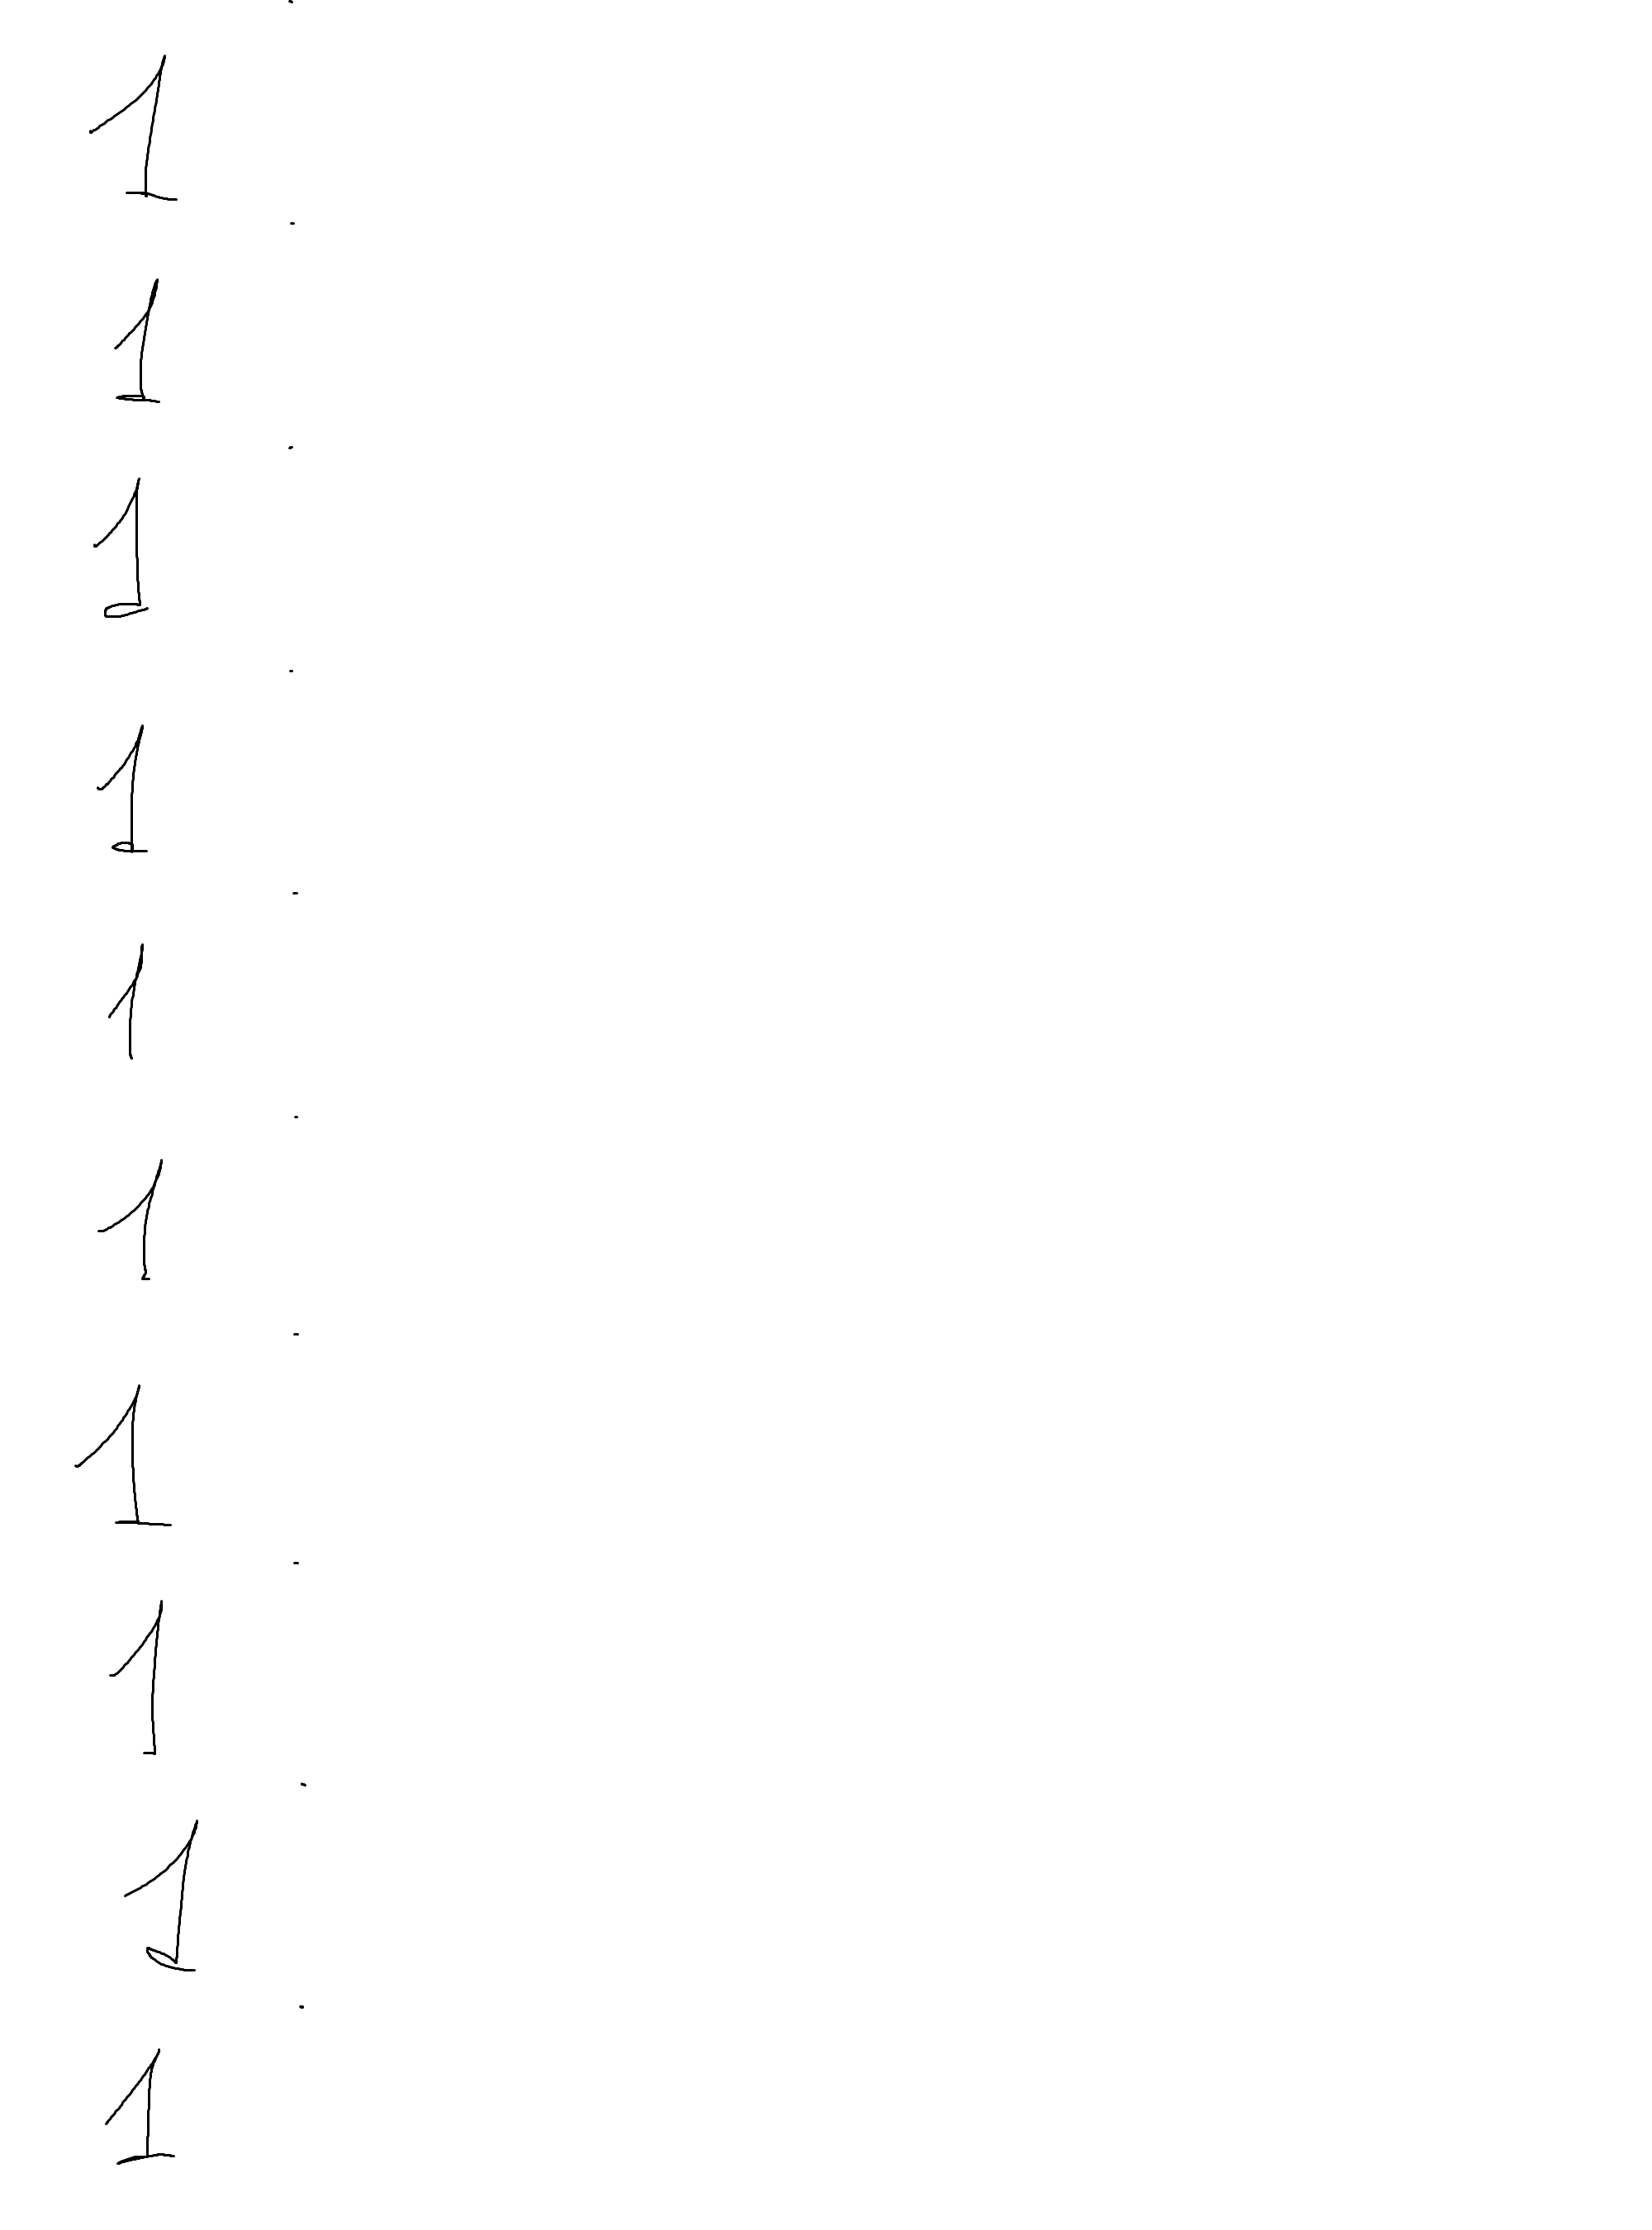 1
1
1
1
1
1
1
1
1
1